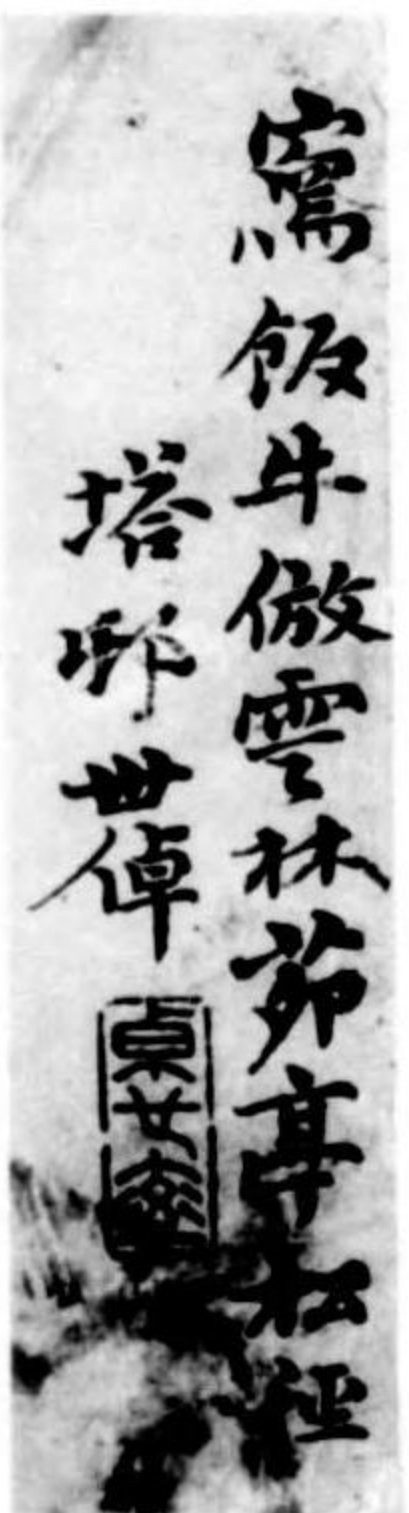 寫飯牛倣雲林茆亭松徑
塔邨世倬